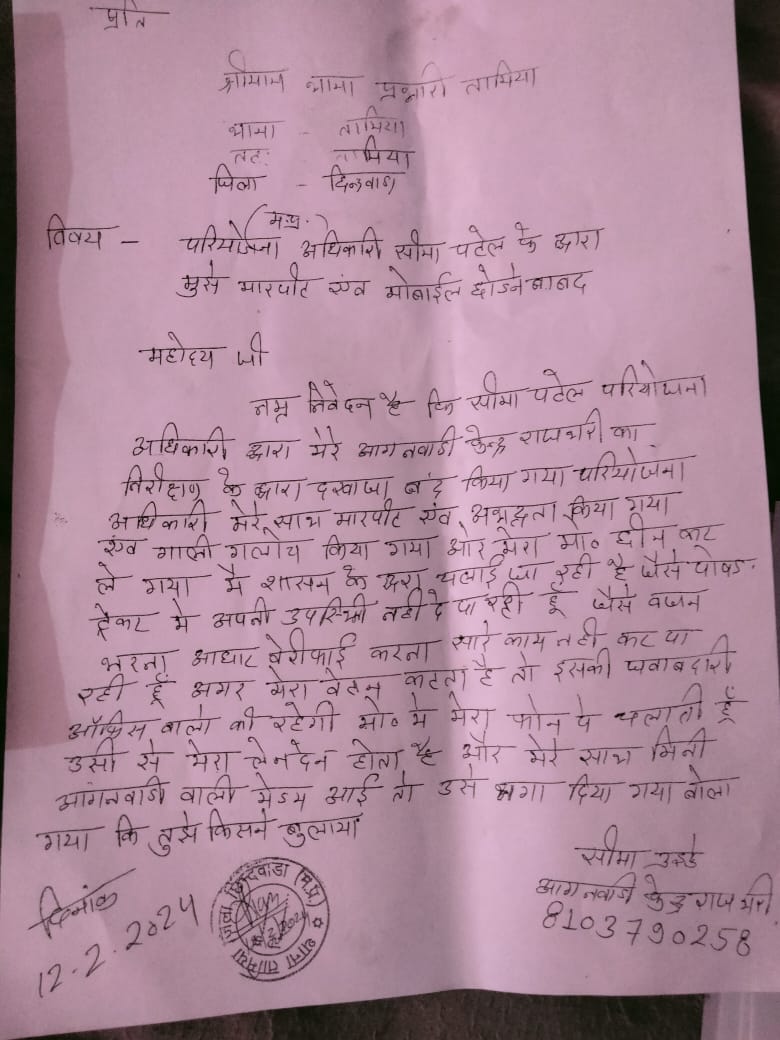 प्रति
श्रीमान थाना प्रभारी तामिया
थाना - तामिया
तह. तामिया
जिला - छिन्दवाडा
(म.प्र.)
विषय - परियोजना अधिकारी सीमा पटेल के द्वारा
मुझे मारपीट एंव मोबाईल छीडने बाबद
महोदय जी
नम्र निवेदन है कि सीमा पटेल परियोजना
अधिकारी द्वारा मेरे आगनवाडी केन्द्र राजथरी का
निरीक्षण के द्वारा दरवाजा बंद किया गया परियोजना
अधिकारी मेरे साथ मारपीट एंव अभद्रता किया गया
एंव गाली गलोच किया गया और मेरा मो० छीन कर
ले गया मै शासन के द्वारा चलाई जा रही है जैसे पोषड.
ट्रेकर मे अपनी उपस्थिती नही दे पा रही हूँ जैसे वजन
भरना आधार वेरीफाई करना सारे काय नही कर पा
रही हूँ अगर मेरा वेतन कटता है तो इसकी जवाबदारी
ऑफिस वालो की रहेगी मो० मे मेरा फोन पे चलाती हूँ
उसी से मेरा लेनदेन होता है और मेरे साथ मिनी
आंगनवाडी वाली मेडम आई तो उसे भगा दिया गया बोला
गया कि तुझे किसने बुलाया
सीमा उइके
आगनवाडी केन्द्र राजथरी
8103790258
दिनांक
12.2.2024
थाना तामिया जिला छिन्दवाडा (म.प्र.)